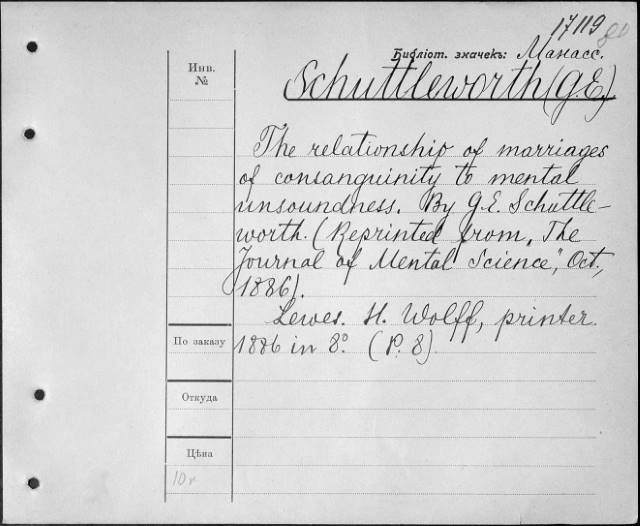 17119
Библіот. значекъ: Манасс.
Инв.
№
Schuttleworth (G.E.)
The relationship of marriages
of consanguinity to mental
unsoundness. By G.E. Schuttle-
worth. (Reprinted from „The
Journal of Mental Science", Oct.,
1886).
Lewes. H. Wolff, printer.
По заказу
1886 in 8°. (P. 8).
Откуда
Цѣна
10 к